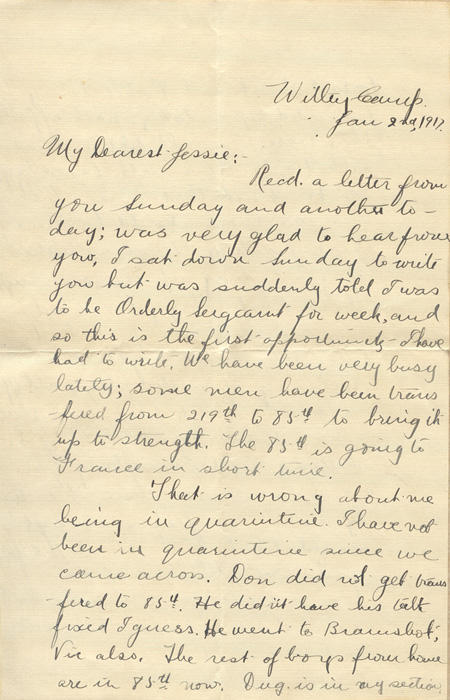 Witley Camp.
Jan 2nd, 1917.
My Dearest Jessie:-
Recd. a letter from
you Sunday and another to-
day; was very glad to hear from
you. I sat down Sunday to write
you but was suddenly told I was
to be Orderly Sergeant for week, and
so this is the first opportunity I have
had to write. We have been very busy
lately; some men have been trans
fered from 219th to 85th to bring it
up to strength. The 85th is going to
France in short time.
That is wrong about me
being in quarintine. I have not
been in quarintine since we
came across. Don did not get trans
fered to 85th. He didn't have his
fixed I guess. He went to Bramshot,
Vic also. The rest of boys from home
are in 85th now. Dug. is in my section,